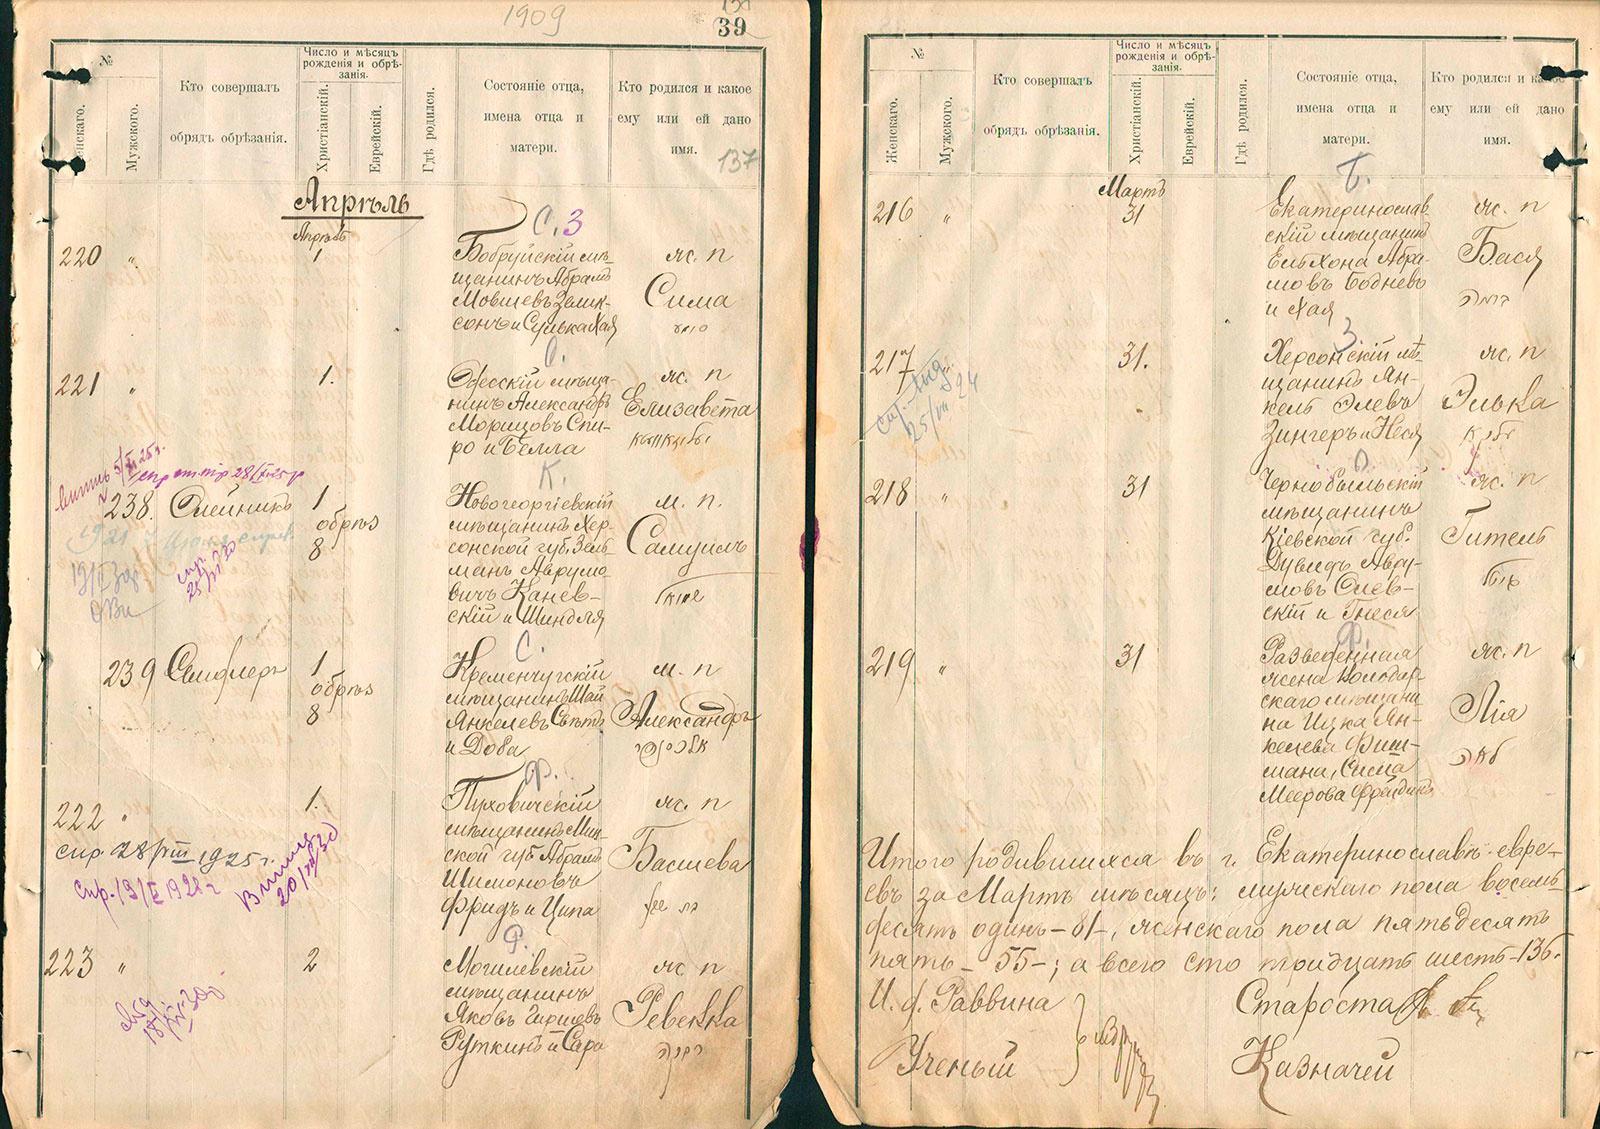 1909
39
137
№
Женскаго.
Мужского.
Кто совершалъ
обрядъ обрѣзанія.
Число и мѣсяцъ
рожденія и обрѣ-
занія.
Христіанскій.
Еврейскій.
Гдѣ родился.
Состояніе отца,
имена отца и
матери.
Кто родился и какое
ему или ей дано
имя.
Апрѣль
С. З
220 "
Апрѣль
1
Бобруйскій мѣ-
щанинъ Абрамъ
Мовшевъ Залик-
сонъ и Сулька Хая
ж. п
Сима
С.
221 "
1.
Одесскій мѣща-
нинъ Александръ
Морицовъ Спи-
ро и Белла
ж. п
Елизавета
К.
238. Олейникъ
1
обрѣз
8
Новогеоргіевскій
мѣщанинъ Хер-
сонской губ. Зель-
манъ Аврумо-
вичъ Канев-
скій и Шиндля
м. п.
Самуилъ
С.
239
1
обрѣз
8
Кременчугскій
мѣщанинъ Шая
Янкелевъ Свѣтъ
и Доба
м. п
Александръ
Ф.
222 "
спр. 28/VIII 1925 г.
1.
Пуховичскій
мѣщанинъ Мин-
ской губ Абрамъ
Шимоновъ
Фридъ и Ципа
ж. п
Басшева
Р.
223 "
2
Могилевскій
мѣщанинъ
Яковъ Гиршевъ
Руткинъ и Сара
ж. п
Ревекка
רבקה
№
Женскаго.
Мужского.
Кто совершалъ
обрядъ обрѣзанія.
Число и мѣсяцъ
рожденія и обрѣ-
занія.
Христіанскій.
Еврейскій.
Гдѣ родился.
Состояніе отца,
имена отца и
матери.
Кто родился и какое
ему или ей дано
имя.
Б.
216 "
Мартъ
31
Екатеринослав-
скій мѣщанинъ
Ельхона Абра-
мовъ Бодневъ
и Хая
ж. п
Бася
З
217 "
31.
Херсонскій мѣ-
щанинъ Ян-
кель Элевъ
Зингеръ и Неся
ж. п
Элька
218 "
31
Чернобыльскій
мѣщанинъ
Кіевской губ.
Дувидъ Авру-
мовъ
скій и Гнеся
ж. п
Гитель
Ф.
219 "
31
Разведенная
жена Володар-
скаго мѣщани-
на Ицка Ян-
келева Фиш-
мана, Сима
Меерова Фрейдинъ
ж. п
Лія
לאה
Итого родившихся въ г. Екатеринославѣ евре-
евъ за Мартъ мѣсяцъ: мужскаго пола восемь-
десятъ одинъ – 81 –, женскаго пола пятьдесятъ
пять – 55 –; а всего сто тридцать шесть – 136.
И. д. Раввина
Староста
Ученый
Казначей